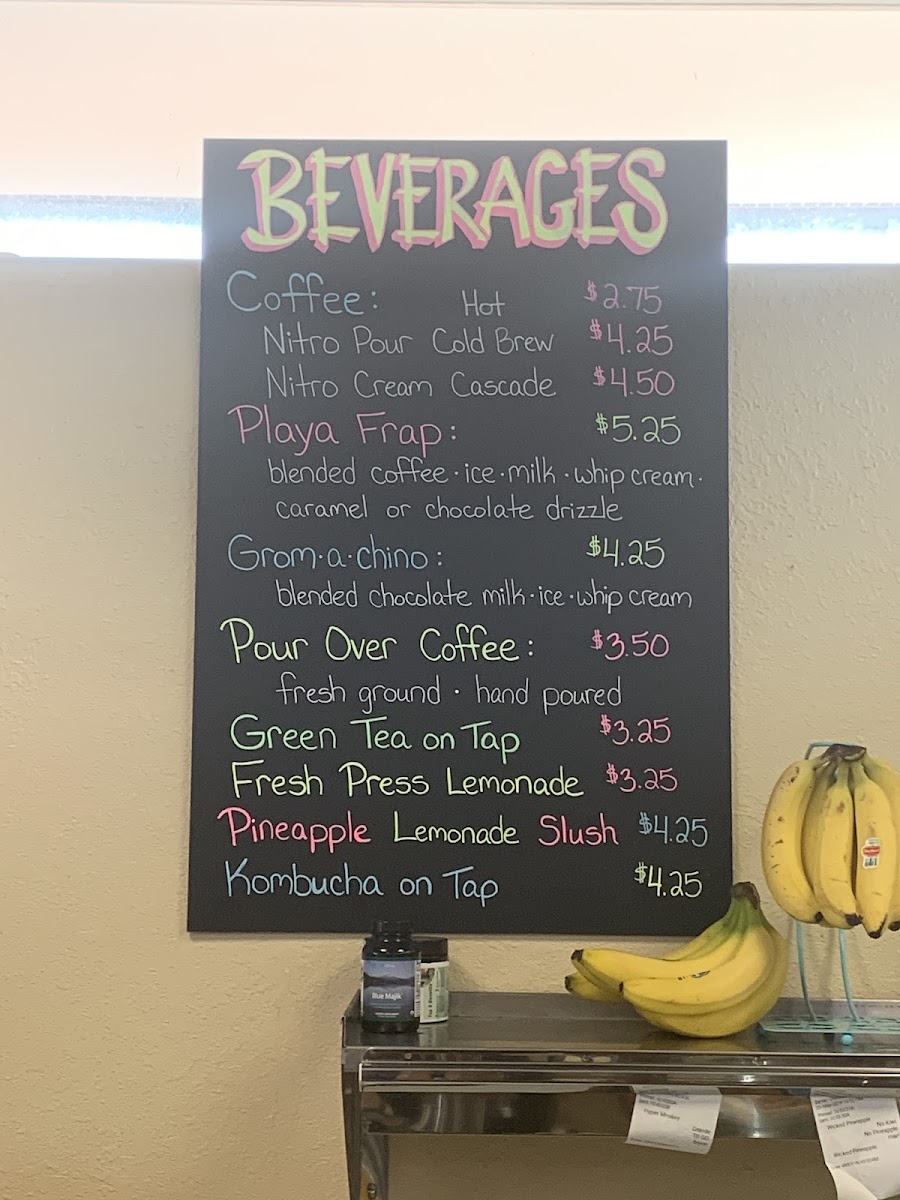 BEVERAGES
Coffee: Hot $2.75
Nitro Pour Cold Brew $4.25
Nitro Cream Cascade $4.50
Playa Frap: $5.25
blended coffee · ice · milk · whip cream ·
caramel or chocolate drizzle
Grom·a·chino: $4.25
blended chocolate milk · ice · whip cream
Pour Over Coffee: $3.50
fresh ground · hand poured
Green Tea on Tap $3.25
Fresh Press Lemonade $3.25
Pineapple Lemonade Slush $4.25
Kombucha on Tap $4.25
Blue Majik
Wicked Pineapple
No Kiwi
No Pineapple
Wicked Pineapple